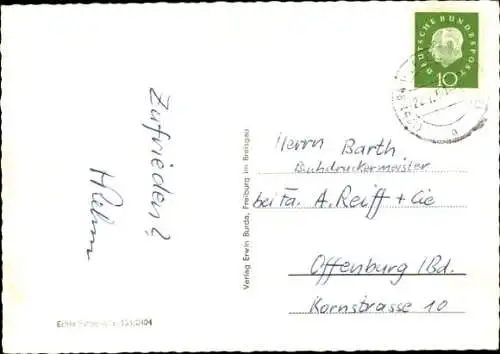 DEUTSCHE BUNDESPOST
10
Zufrieden?
Herrn Barth
Buchdruckermeister
bei Fa. A. Reiff + Cie
Offenburg /Bd.
Kornstrasse 10
Verlag Erwin Burda, Freiburg im Breisgau
Echte